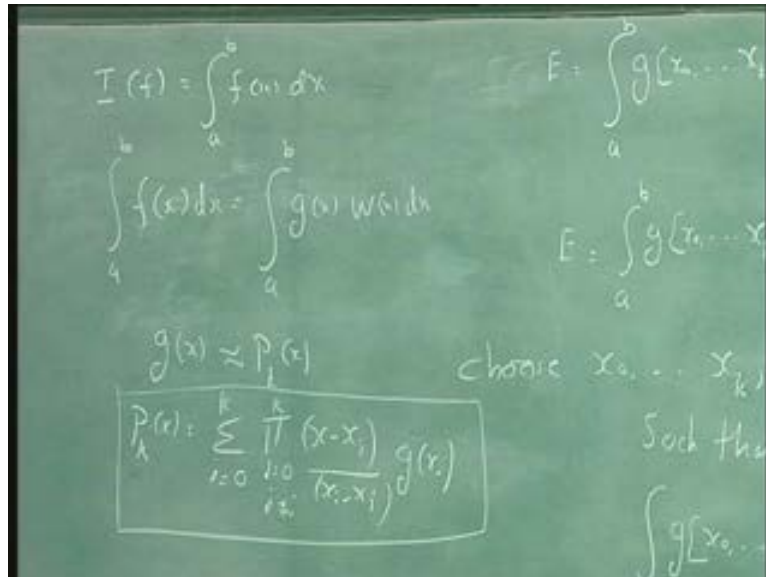 I(f) = ∫_a^b f(x) dx
∫_a^b f(x) dx = ∫_a^b g(x) w(x) dx
g(x) ≈ P_k(x)
P_k(x) = ∑_{i=0}^k ∏_{j=0, j≠i}^k (x-x_j)/(x_i-x_j) g(x_i)
E = ∫_a^b g[x_0, ... x_k
E = ∫_a^b g[x_0, ... x
choose x_0, ... x_k,
Such tha
∫ g[x_0, ...